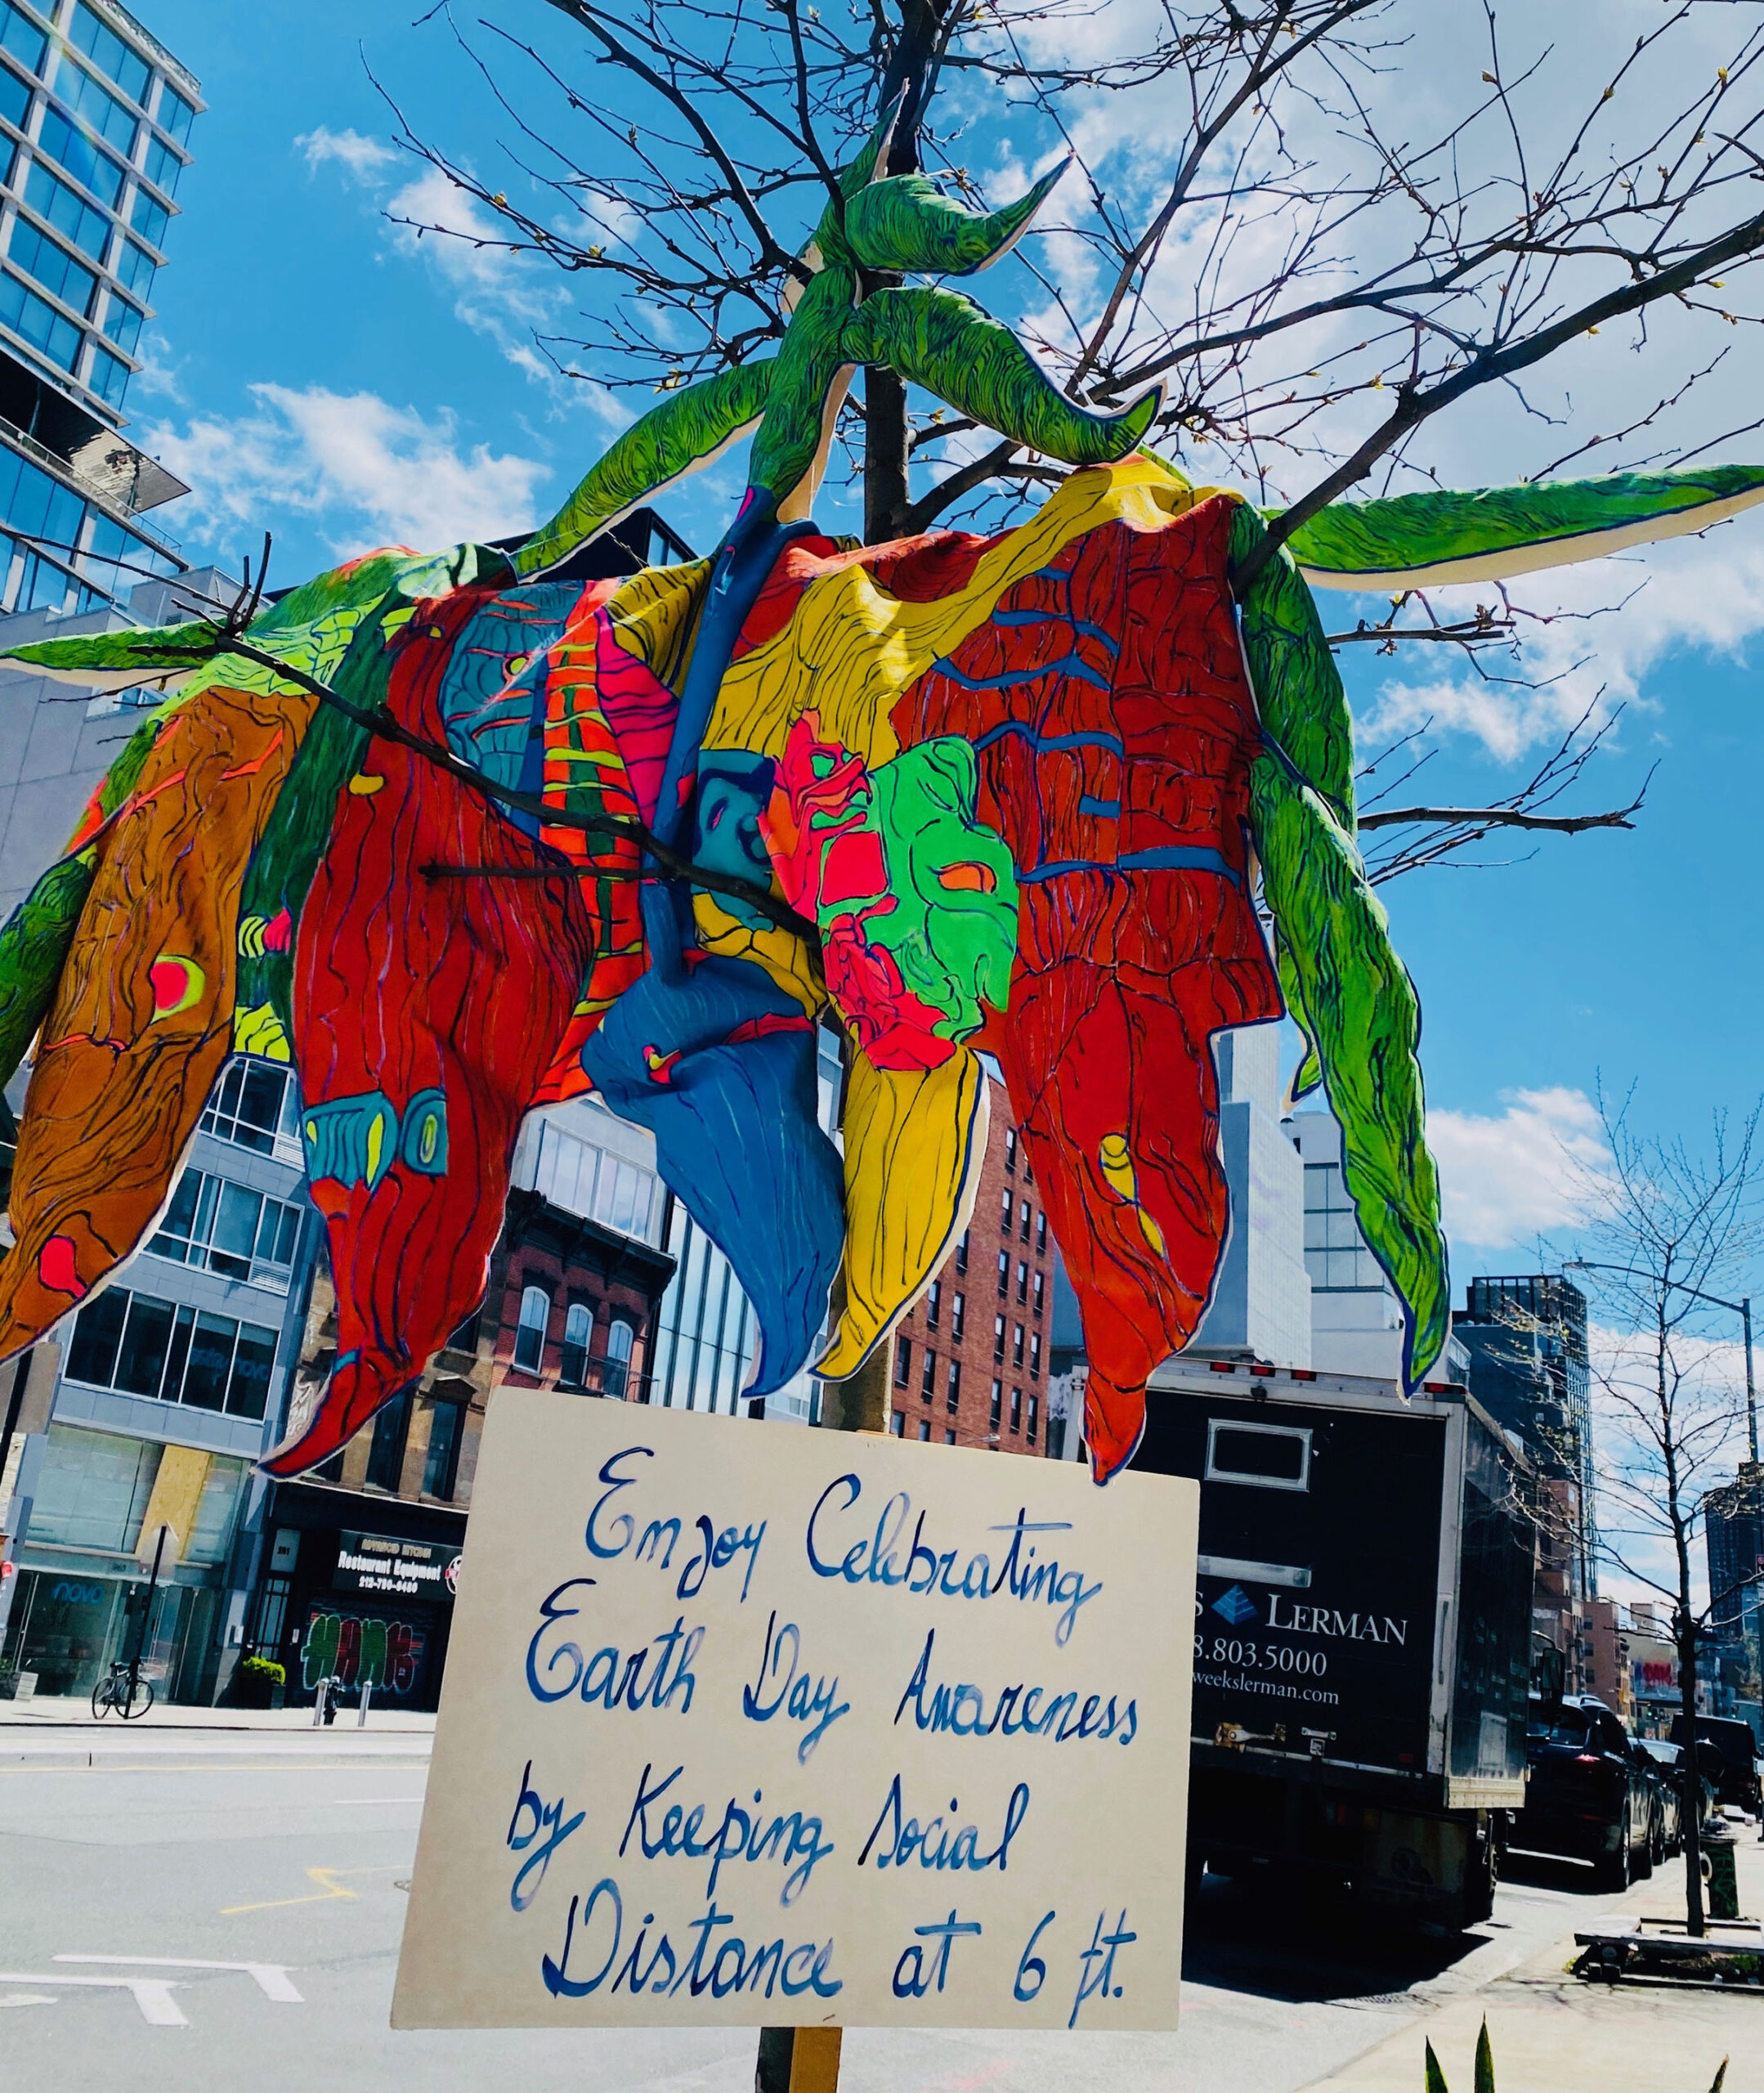 Enjoy Celebrating
Earth Day Awareness
by Keeping Social
Distance at 6 ft.
S LERMAN
8.803.5000
weekslerman.com
ADVANCED KITCHEN
Restaurant Equipment
212-780-0400
novo